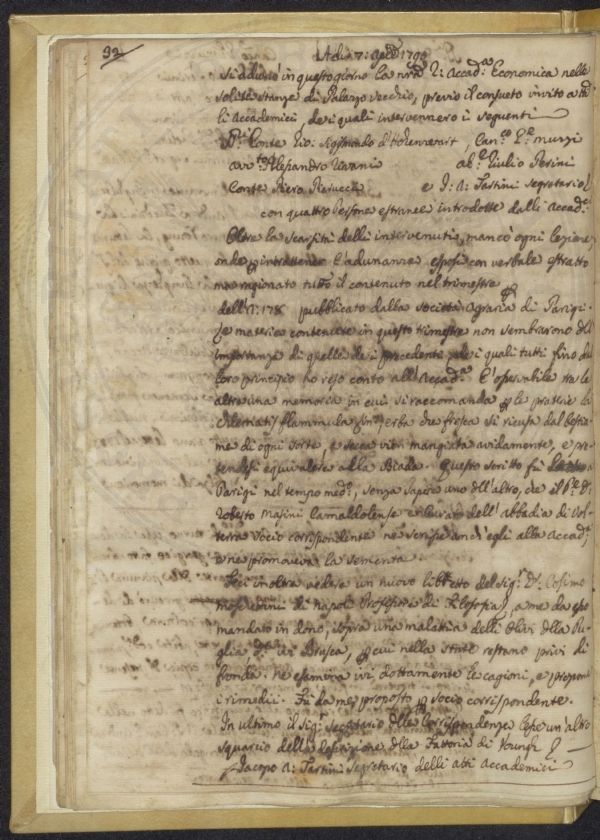 32
Adì 7: 1790
Si adunò in questo giorno la nrã R: Accad.a Economica nelle
solite stanze di Palazzo Vecchio, previo il consueto invito a tut
li Accademici dei quali intervennero i seguenti
Conte Gio: Sigismondo d'Hohenwart, Can.co
Alessandro Rivani ab.e Giulio Perini
Conte Piero Pierucci e J: A: Tartini segretario
con quattro Persone estranee introdotte dalli Accad.ci
Oltre la scarsità delli intervenuti, mancò ogni lezione
onde intrattenere l'adunanza esposi con verbale estratto
ma ragionato tutto il contenuto nel trimestre
dell'A: 178 pubblicato dalla società Agraria di Parigi.
Le materie contenute in questo trimestre non sembrarono dell
importanza di quelle dei precedenti, dei quali tutti fino dal
loro principio ho reso conto all'Accad.a È osservabile tra le
altre una memoria in cui si raccomanda le praterie la
Clematis flammula, erba che fresca si ricusa dal bestia
me di ogni sorte, e secca vien mangiata avidamente, e pre
tendesi equivalere alla Biada. Questo scritto fu
Parigi nel tempo med.o, senza sapere uno dell'altro, che il P.e D:
Roberto Masini Camaldolense e Curato dell'abbadia di Vol
terra socio corrispondente ne scrisse anch'egli alla Accad.a
e ne promoveva la sementa.
Feci inoltre vedere un nuovo libretto del Sig.r D.r Cosimo
Moschettini di Napoli Professore di Filosofia, a me da esso
mandato in dono, sopra una malattia delli Olivi della Pu
glia d.a ivi Brusca, cui nella state restano privi di
fronda. Ne esamina ivi, dottamente le cagioni, e propone
i rimedii. Fù da me proposto socio corrispondente.
In ultimo il Sig.r Segretario delle Corrispondenze lesse un'altro
squarcio della descrizione della Fattoria di Youngh
Jacopo A: Tartini Segretario delli atti Accademici